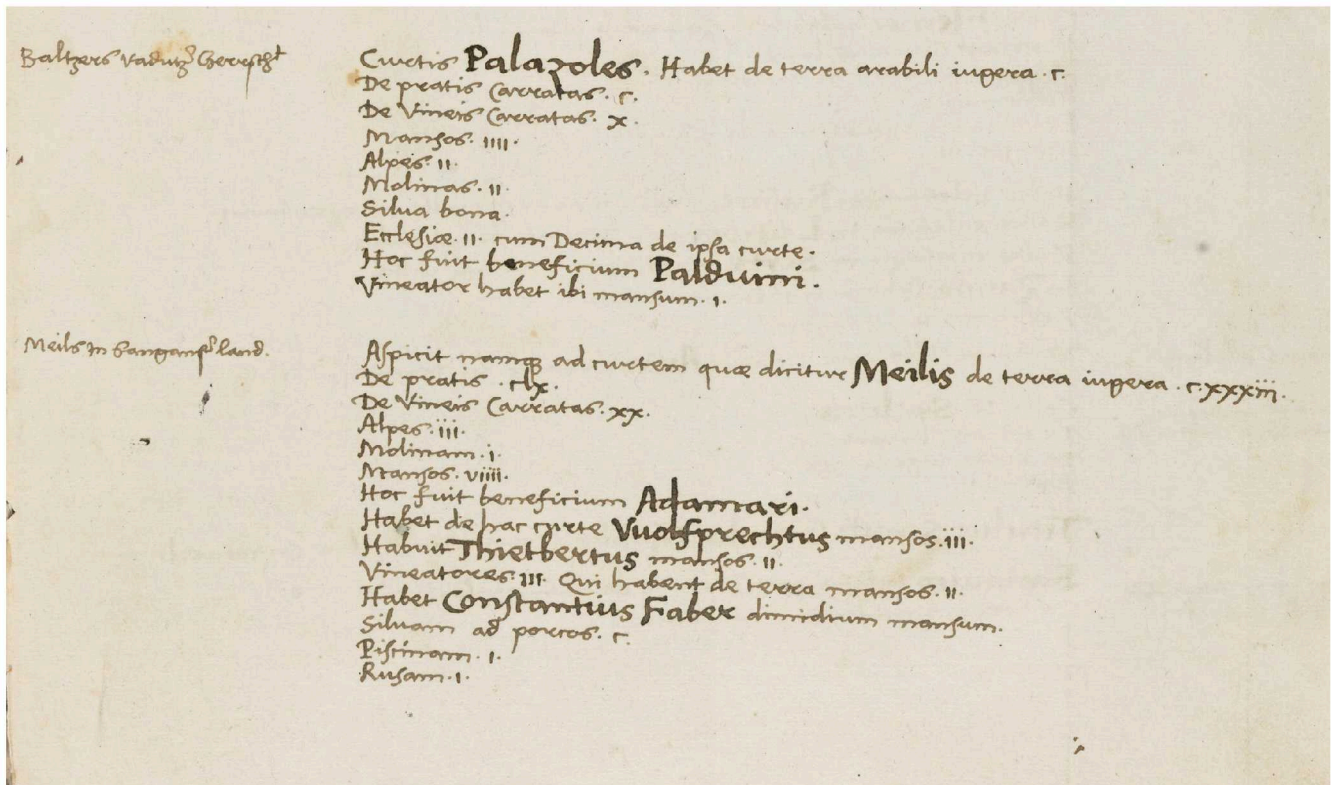 Baltzers Vadutzer Herrscht
Curtis Palazoles. Habet de terra arabili iugera .c.
De pratis Carratas. c.
De Vineis Carratas. x.
Mansos. iiii.
Alpes. ii.
Molinas. ii.
Silva bona.
Ecclesiæ. ii. cum Decima de ipsa curte.
Hoc fuit beneficium Palduini.
Vineator habet ibi mansum. i.
Meils in Sangansr land.
Aspicit namq ad curtem quæ dicitur Meilis de terra iugera . c.xxxiii.
De pratis . clx.
De Vineis Carratas. xx.
Alpes. iii.
Molinam. i.
Mansos. viiii.
Hoc fuit beneficium Adamari.
Habet de hac curte Vuolfprechtus mansos. iii.
Habuit Thietbertus mansos. ii.
Vineatores. iii. Qui habent de terra mansos. ii.
Habet Constantius Faber dimidium mansum.
Silvam ad porcos. c.
Piscinam. i.
Rusam. i.